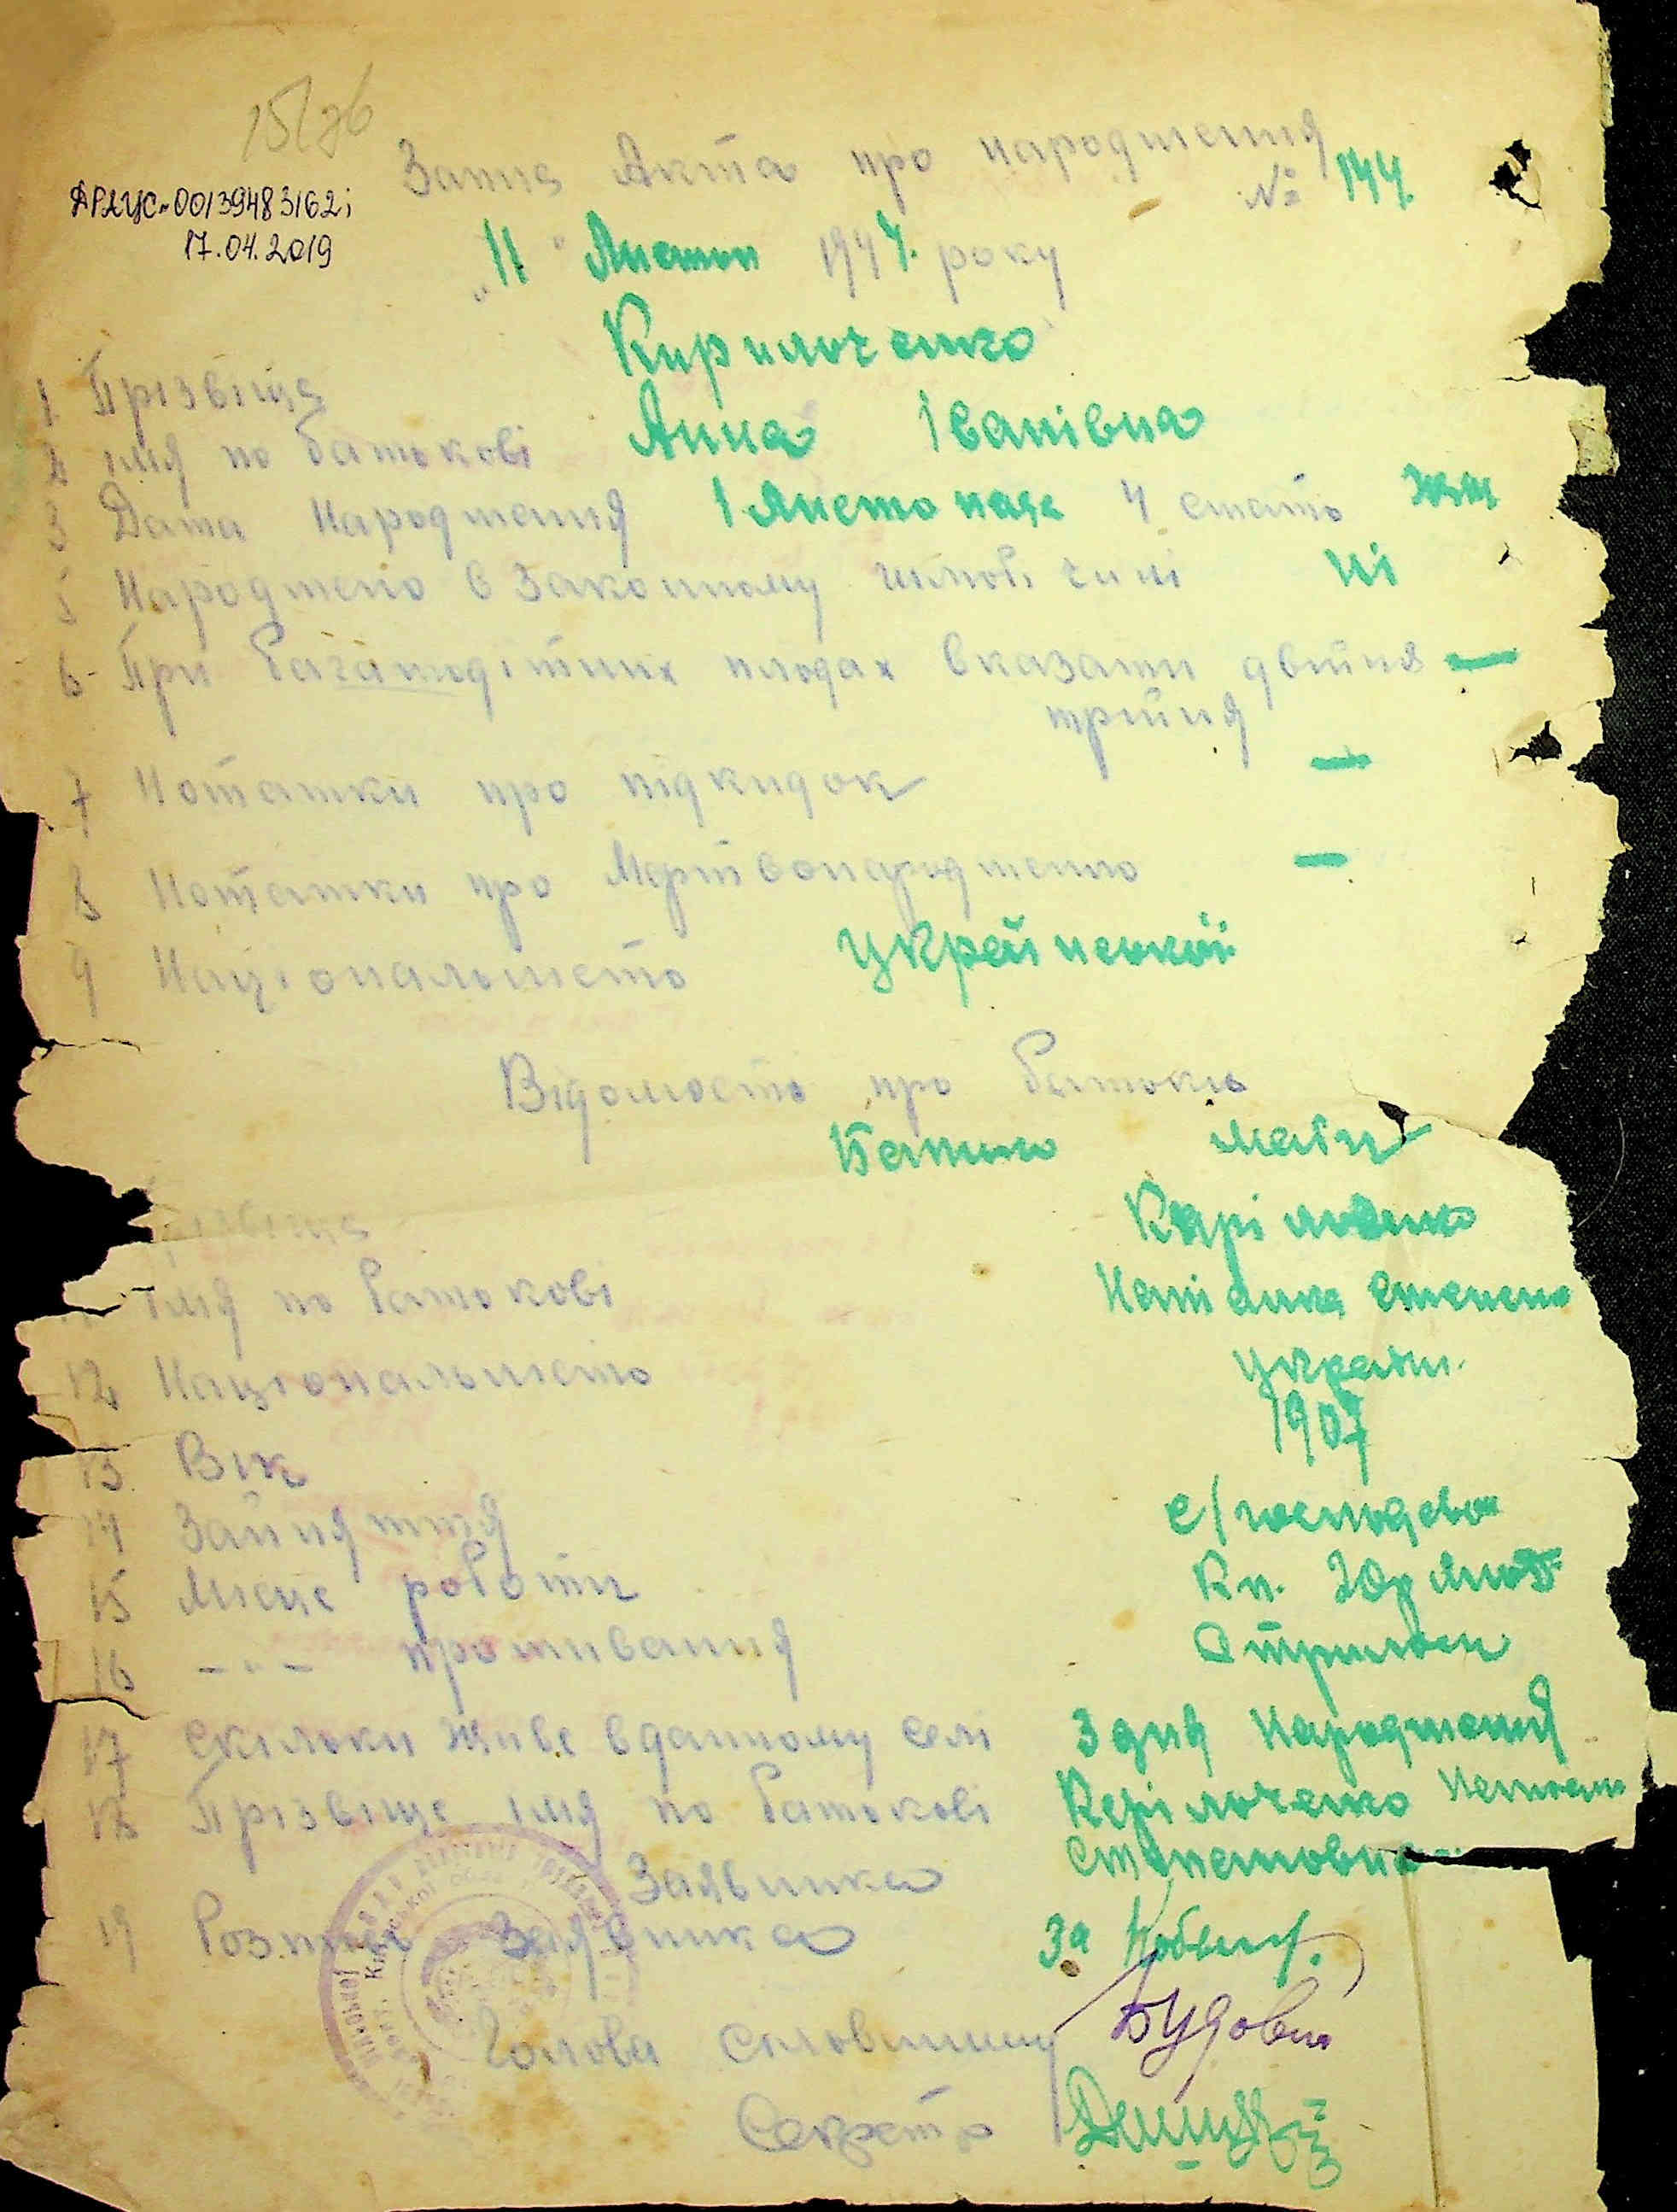 15/76
ДРАЦС-00139483162;
17.04.2019
Запис Акта про народження
№ 144.
"11" Листоп 1947. року
Кирилюченко
1. Прізвище
2 імя по батькові Анна Іванівна
3 Дата Народження 1 листопада 4 стать жін
5 Народжено в законному шлюбі чи ні Ні
6 При багатодітних плодах вказати двійня —
трійня
7 Нотатки про підкидок —
8 Нотатки про Мертвонародженно —
9 Національність Української
Відомость про батьків
Батько Мати
Кирілюченко
імя по батькові
12 Національність Україн.
13 Вік 1907
14 Зайняття с/господсво
15 Місце роботи
16 —"— проживання
17 скільки живе в данному селі З дня Народження
18 Прізвище імя по батькові Керілюченко
Заявника Степановна
19 Розпис Заявника За
Голова
Секретр